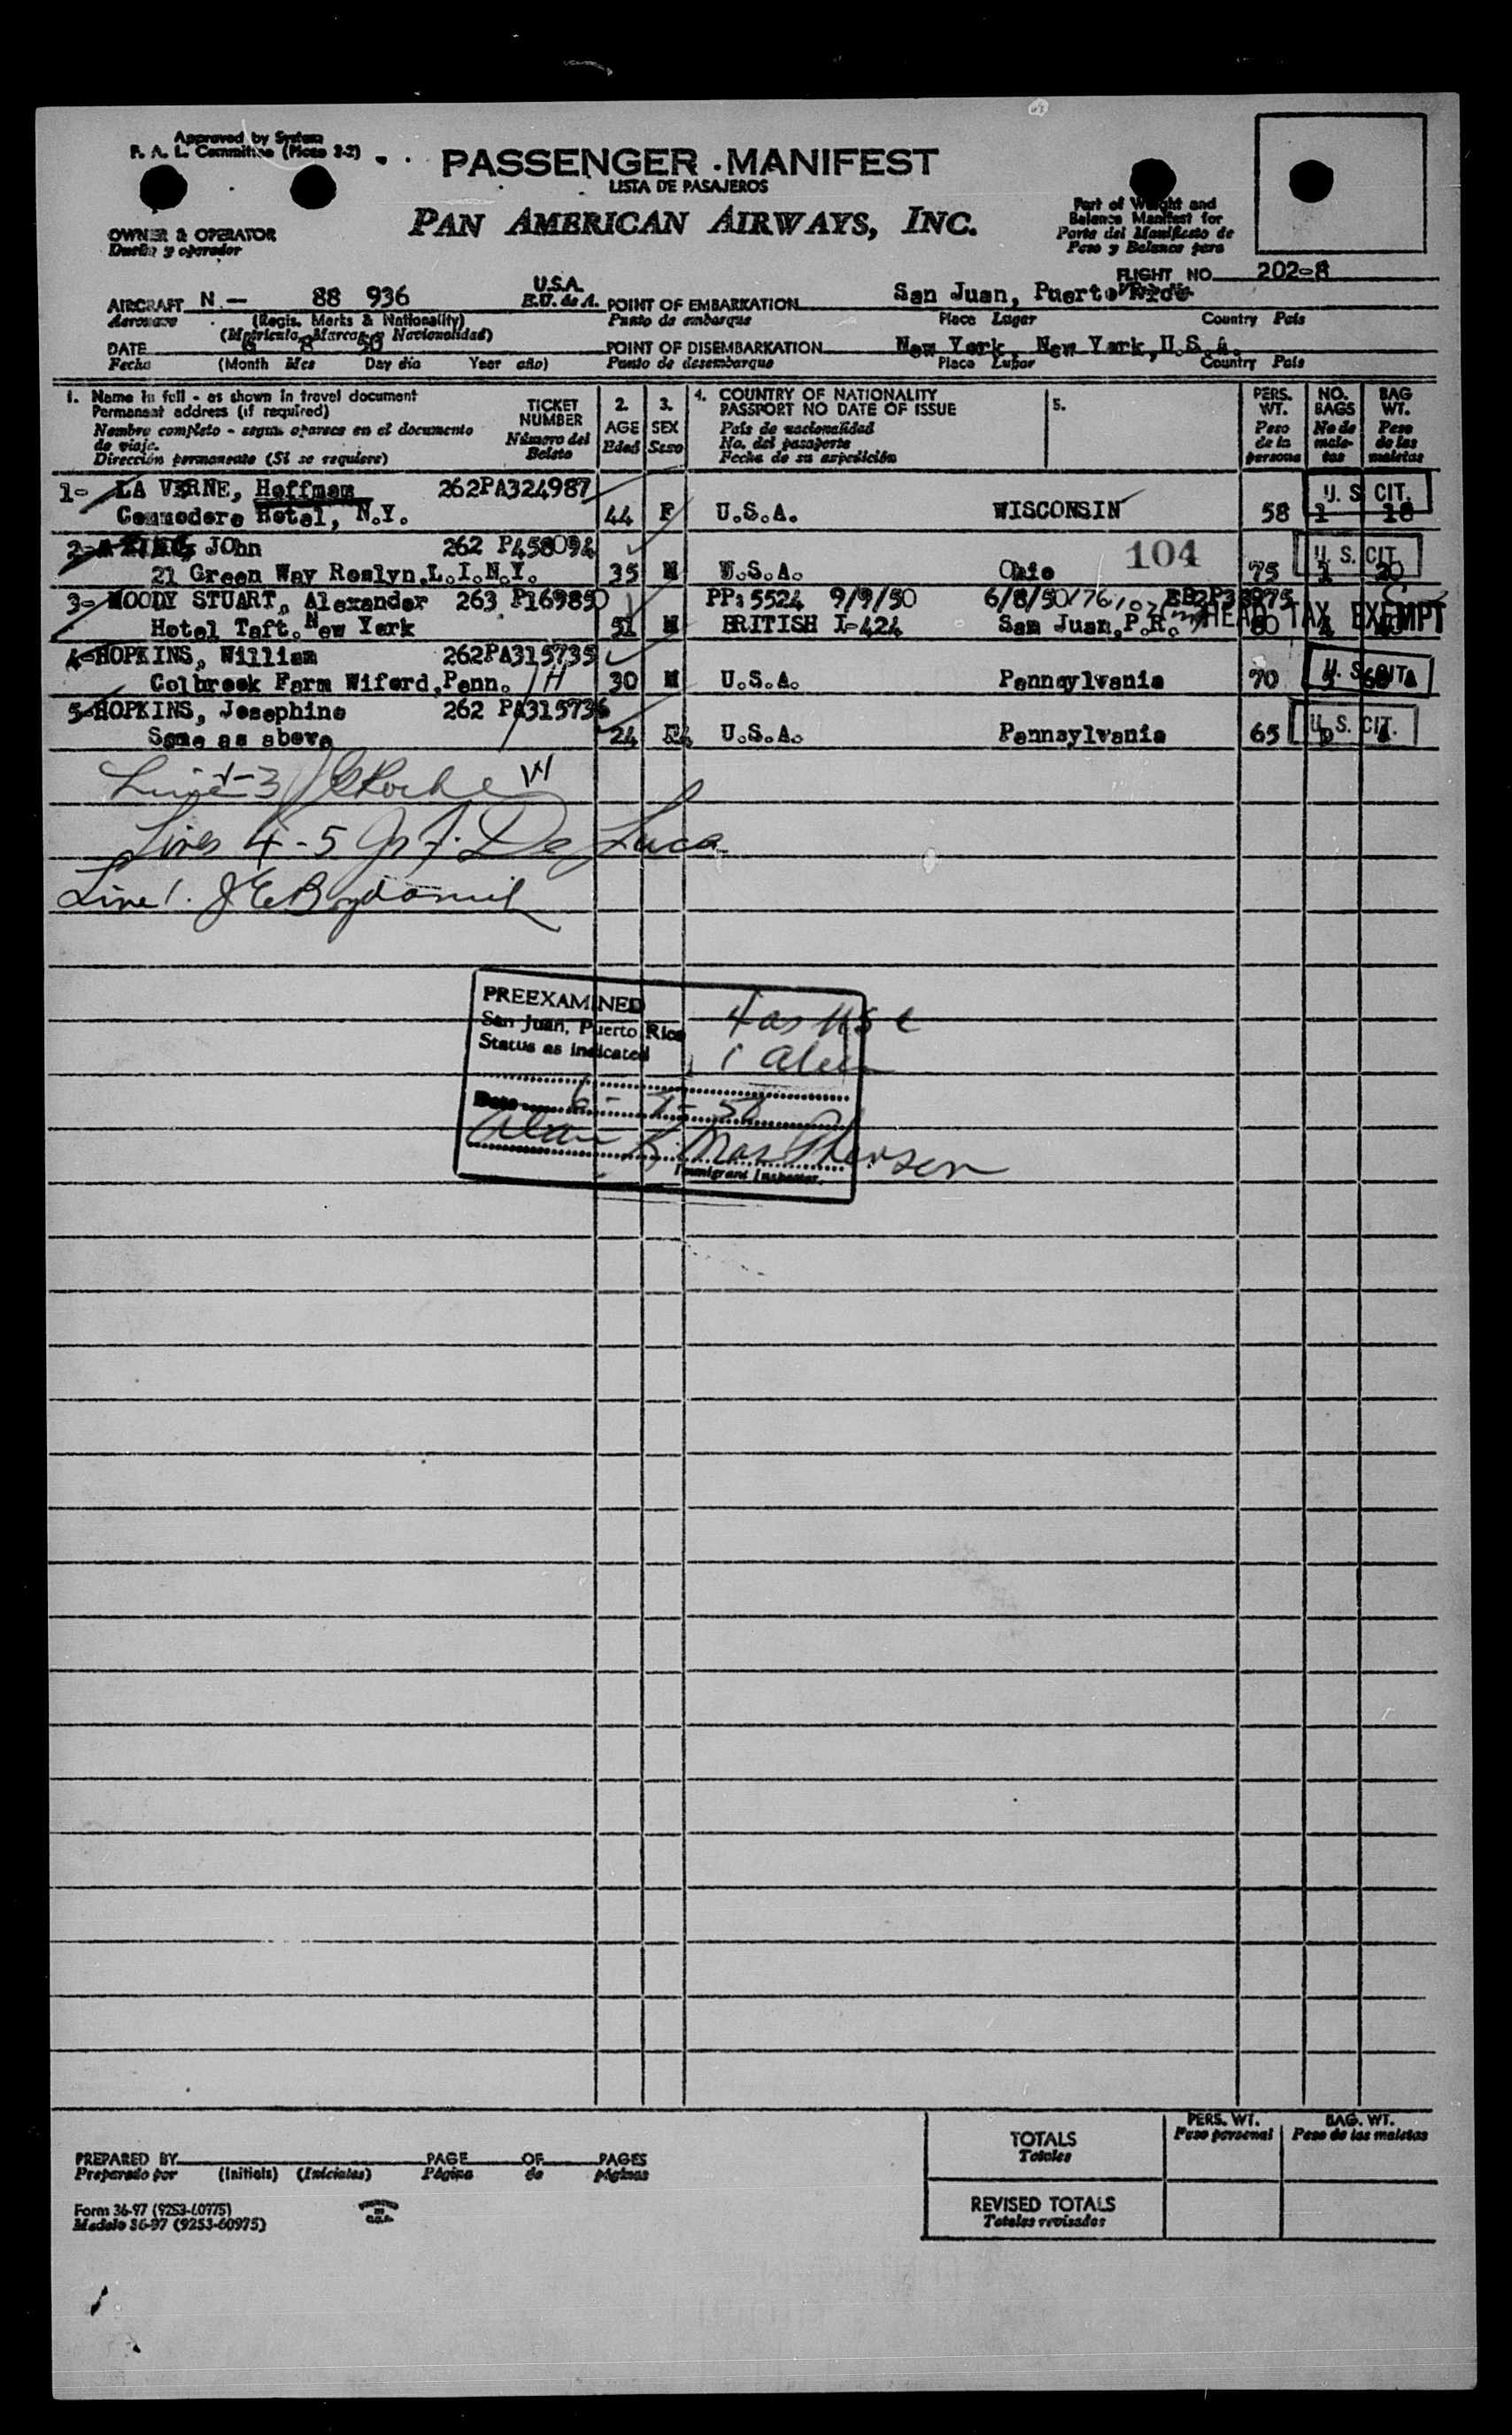 Approved by System
F. A. L. Committee (Mços 3-2)
PASSENGER MANIFEST
LISTA DE PASAJEROS
PAN AMERICAN AIRWAYS, INC.
OWNER & OPERATOR
Dueño y operador
Part of Weight and
Balance Manifest for
Parte del Manifiesto de
Peso y Balance para
FLIGHT NO. 202-8
AIRCRAFT N — 88 936 U.S.A.
Aeronave (Regis. Marks & Nationality) E.U. de A.
(Matricula, Marcas y Nacionalidad)
POINT OF EMBARKATION San Juan, Puerto Rico
Punto de embarque Place Lugar Country País
DATE 6 8 50
Fecha (Month Mes Day día Year año)
POINT OF DISEMBARKATION New York, New York, U.S.A.
Punto de desembarque Place Lugar Country País
1. Name in full - as shown in travel document
Permanent address (if required)
Nombre completo - segun aparece en el documento
de viaje.
Dirección permanente (Si se requiere)
TICKET
NUMBER
Número del
Boleto
2.
AGE
Edad
3.
SEX
Sexo
4. COUNTRY OF NATIONALITY
PASSPORT NO DATE OF ISSUE
País de nacionalidad
No. del pasaporte
Fecha de su expedición
5.
PERS.
WT.
Peso
de la
persona
NO.
BAGS
No de
male-
tas
BAG
WT.
Peso
de las
maletas
1- LA VERNE, Hoffmam 262PA324987
Commodore Hotel, N.Y. 44 F U.S.A. WISCONSIN 58 1 18
U. S. CIT.
2- KING John 262 P458094
21 Green Way Roslyn, L.I.N.Y. 35 M U.S.A. Ohio 75 1 20
104
U. S. CIT.
3- MOODY STUART, Alexander 263 P169850 PP:5524 9/9/50 6/8/50
Hotel Taft. New York 51 M BRITISH I-424 San Juan, P.R. 80
HEAD TAX EXEMPT
4-HOPKINS, William 262PA315735
Colbrook Farm Wiford, Penn. H 30 M U.S.A. Pennsylvania 70
U. S. CIT.
5-HOPKINS, Josephine 262 PA315736
Same as above 24 F U.S.A. Pennsylvania 65
U. S. CIT.
Lines 4-5 De Luca
Line 1.
PREEXAMINED
San Juan, Puerto Rico
Status as indicated
4 as USC
1 alien
Date
Immigrant Inspector.
TOTALS
Totales
PERS. WT.
Peso personal
BAG. WT.
Peso de las maletas
REVISED TOTALS
Totales revisados
PREPARED BY PAGE OF PAGES
Preparado por (Initials) (Iniciales) Página de páginas
Form 36-97 (9253-60975)
Modelo 36-97 (9253-60975)